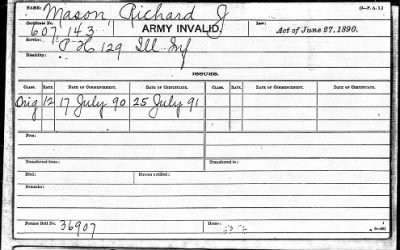 NAME: Mason, Richard J (3-P. A. I.)
Certificate No. 607,143 ARMY INVALID. Law: Act of June 27, 1890.
Service: 129 Ill Inf
Disability:
ISSUES.
CLASS. RATE. DATE OF COMMENCEMENT. DATE OF CERTIFICATE. CLASS. RATE. DATE OF COMMENCEMENT. DATE OF CERTIFICATE.
Orig 12 17 July 90 25 July 91
Fees:
Transferred from: Transferred to:
Died: Bureau notified:
Remarks:
Former Roll No. 36907 Home: